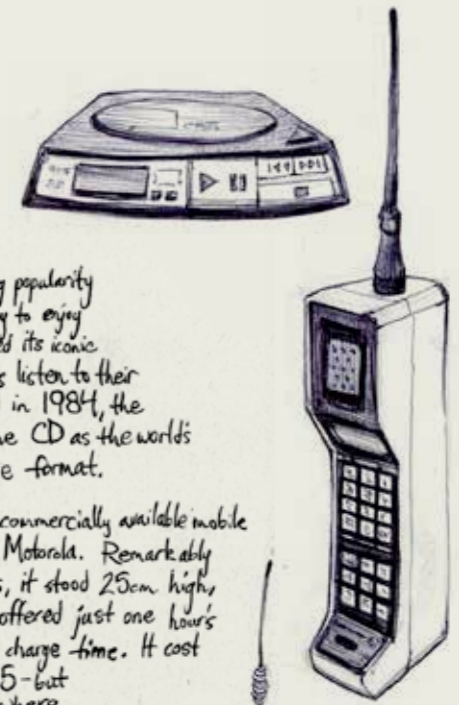 g popularity
y to enjoy
d its iconic
s listen to their
in 1984, the
he CD as the world's
e format.
commercially available mobile
Motorola. Remarkably
s, it stood 25cm high,
offered just one hour's
charge time. It cost
5-but
where